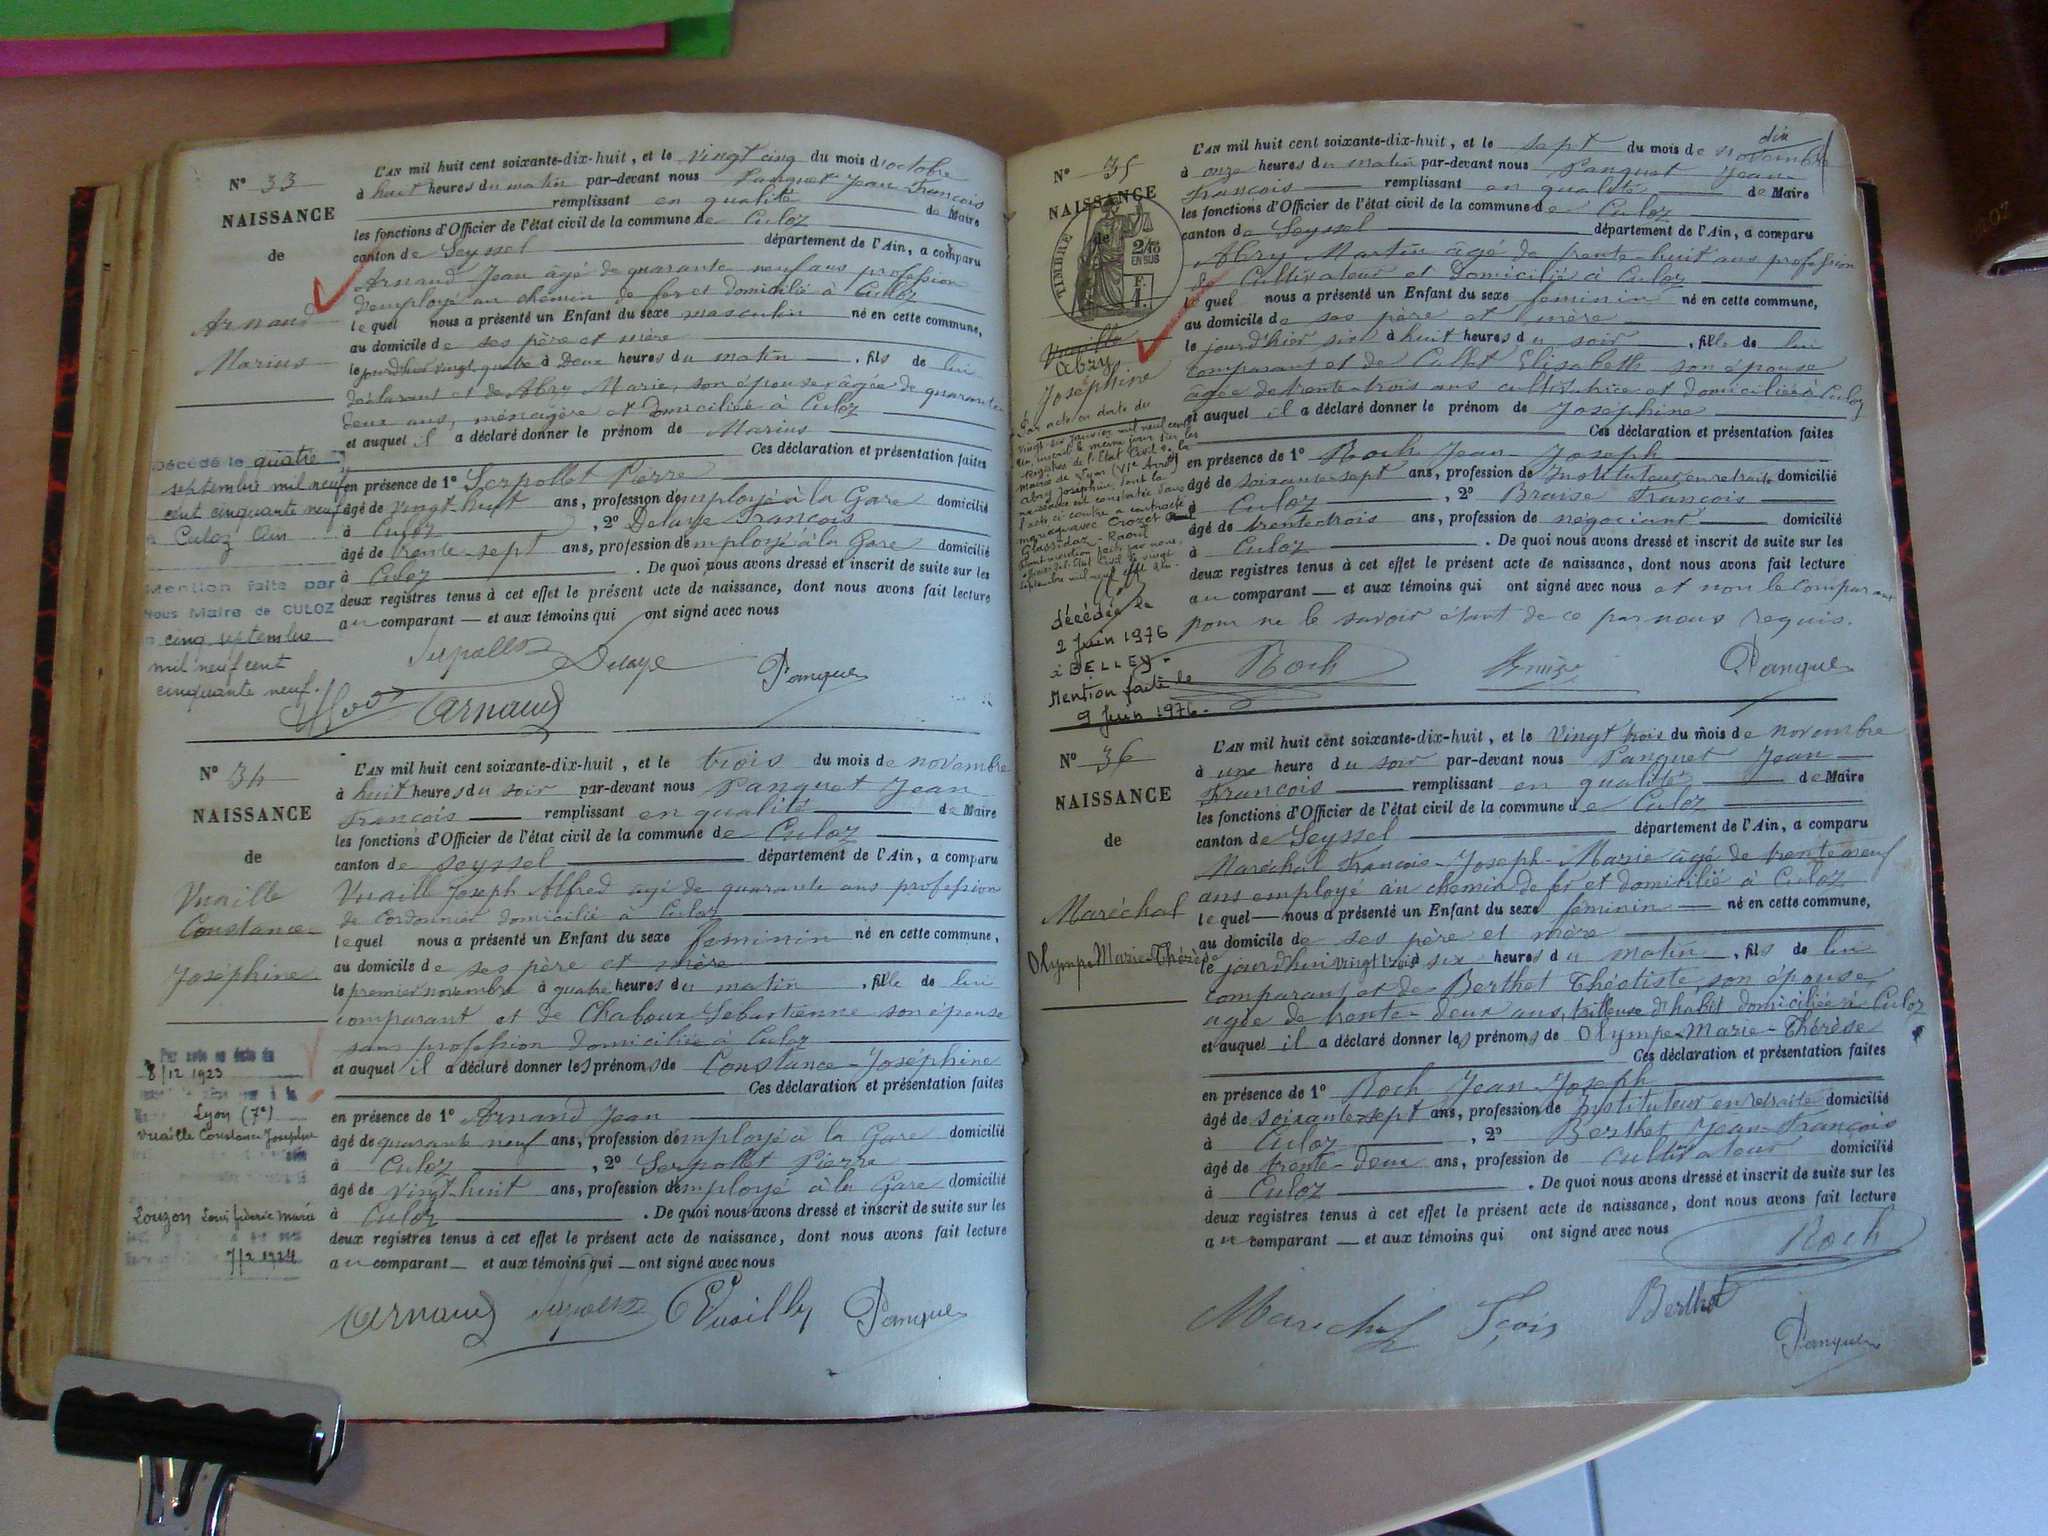 N° 33
NAISSANCE
de
Arnaud
Marius
L'AN mil huit cent soixante-dix-huit, et le vingt cinq du mois d'octobre
à huit heures du matin par-devant nous Panquet Jean François
remplissant en qualité de Maire
les fonctions d'Officier de l'état civil de la commune de Culoz
canton de Seyssel département de l'Ain, a comparu
Arnaud Jean âgé de quarante neuf ans profession
d'employé au chemin de fer et domicilié à Culoz
lequel nous a présenté un Enfant du sexe masculin né en cette commune,
au domicile de ses père et mère
le jourd'hier vingt quatre à deux heures du matin, fils de lui
déclarant et de Abry Marie, son épouse, âgée de quarante
deux ans, ménagère et domiciliée à Culoz
et auquel il a déclaré donner le prénom de Marius
Ces déclaration et présentation faites
en présence de 1° Serpollet Pierre
âgé de vingt-huit ans, profession d'employé à la Gare domicilié
à Culoz, 2° Delaye François
âgé de trente-sept ans, profession d'employé à la Gare domicilié
à Culoz. De quoi nous avons dressé et inscrit de suite sur les
deux registres tenus à cet effet le présent acte de naissance, dont nous avons fait lecture
au comparant et aux témoins qui ont signé avec nous
Décédé le quatre
septembre mil neuf
cent cinquante neuf
à Culoz Ain
Mention faite par
Nous Maire de CULOZ
cinq septembre
mil neuf cent
cinquante neuf.
Serpollet Delaye Panquet
Arnaud
N° 34
NAISSANCE
de
Vuaille
Constance
Joséphine
L'AN mil huit cent soixante-dix-huit, et le trois du mois de novembre
à huit heures du soir par-devant nous Panquet Jean
François remplissant en qualité de Maire
les fonctions d'Officier de l'état civil de la commune de Culoz
canton de Seyssel département de l'Ain, a comparu
Vuaill Joseph Alfred agé de quarante ans profession
de Cordonnier domicilié à Culoz
lequel nous a présenté un Enfant du sexe feminin né en cette commune,
au domicile de ses père et mère
le premier novembre à quatre heures du matin, fille de lui
comparant et de Chaboux Sébastienne son épouse
sans profession domiciliée à Culoz
et auquel il a déclaré donner les prénoms de Constance-Joséphine
Ces déclaration et présentation faites
en présence de 1° Arnaud Jean
âgé de quarante neuf ans, profession d'employé à la Gare domicilié
à Culoz, 2° Serpollet Pierre
âgé de vingt-huit ans, profession d'employé à la Gare domicilié
à Culoz. De quoi nous avons dressé et inscrit de suite sur les
deux registres tenus à cet effet le présent acte de naissance, dont nous avons fait lecture
au comparant et aux témoins qui ont signé avec nous
Par acte en date du
8/12 1923
Lyon (7e)
Vuaille Constance Josephine
Louzon Louis frédéric Marie
7/2 1924
Arnaud Serpollet Vuailly Panquet
N° 35
NAISSANCE
de
TIMBRE
2/10 EN SUS
F. 1.
Vuaille
Abry
Joséphine
L'AN mil huit cent soixante-dix-huit, et le sept du mois de novembre
à onze heures du matin par-devant nous Panquet Jean
François remplissant en qualité de Maire
les fonctions d'Officier de l'état civil de la commune de Culoz
canton de Seyssel département de l'Ain, a comparu
Abry Martin âgé de trente-huit ans profession
de Cultivateur et domicilié à Culoz
lequel nous a présenté un Enfant du sexe feminin né en cette commune,
au domicile de ses père et mère
le jourd'hier six à huit heures du soir, fille de lui
comparant et de Callet Elisabeth son épouse
âgée de trente-trois ans cultivatrice et domiciliée à Culoz
et auquel il a déclaré donner le prénom de Joséphine
Ces déclaration et présentation faites
en présence de 1° Roch Jean-Joseph
âgé de soixante sept ans, profession de Instituteur en retraite domicilié
à Culoz, 2° Braise François
âgé de trente trois ans, profession de négociant domicilié
à Culoz. De quoi nous avons dressé et inscrit de suite sur les
deux registres tenus à cet effet le présent acte de naissance, dont nous avons fait lecture
au comparant et aux témoins qui ont signé avec nous et non le comparant
pour ne le savoir étant de ce par nous requis.
Par acte en date du
vingt six janvier mil neuf cent
un, inscrit le même jour sur les
registres de l'Etat Civil de la
mairie de Lyon (VIe Arrdt)
Abry Joséphine, dont la
naissance est constatée dans
l'acte ci-contre a contracté
mariage avec Crozet
Glassidaz Raoul
décédée le
2 Juin 1976
à BELLEY-
Mention faite le
9 Juin 1976-
Roch Panquet
N° 36
NAISSANCE
de
Maréchal
Olympe Marie-Thérèse
L'AN mil huit cent soixante-dix-huit, et le vingt trois du mois de novembre
à une heure du soir par-devant nous Panquet Jean
François remplissant en qualité de Maire
les fonctions d'Officier de l'état civil de la commune de Culoz
canton de Seyssel département de l'Ain, a comparu
Maréchal François-Joseph-Marie âgé de trente neuf
ans employé au chemin de fer et domicilié à Culoz
lequel nous a présenté un Enfant du sexe féminin né en cette commune,
au domicile de ses père et mère
le jourd'hui vingt trois à six heures du matin, fils de lui
comparant et de Berthet Théotiste, son épouse
agée de trente-deux ans, tailleuse d'habit domiciliée à Culoz
et auquel il a déclaré donner les prénoms de Olympe-Marie-Thérèse
Ces déclaration et présentation faites
en présence de 1° Roch Jean-Joseph
âgé de soixante-sept ans, profession de Instituteur en retraite domicilié
à Culoz, 2° Berthet Jean-François
âgé de trente-deux ans, profession de cultivateur domicilié
à Culoz. De quoi nous avons dressé et inscrit de suite sur les
deux registres tenus à cet effet le présent acte de naissance, dont nous avons fait lecture
au comparant et aux témoins qui ont signé avec nous
Roch
Marechal Fçois Berthet
Panquet